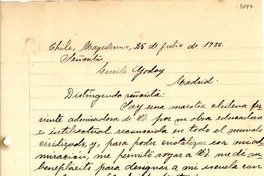 1097
Chile, Magallanes, 25 de julio de 1933.
Señorita
Lucila Godoy
Madrid.
Distinguida señorita:
Soy una maestra chilena fer
viente admiradora de Ud. por su obra educadora
e intelectual reconocida en todo el mundo
civilizado, y, para cristalizar con mi ad
miración, me permito rogar a Ud. me dé su
beneplácito para designar a mi escuela con